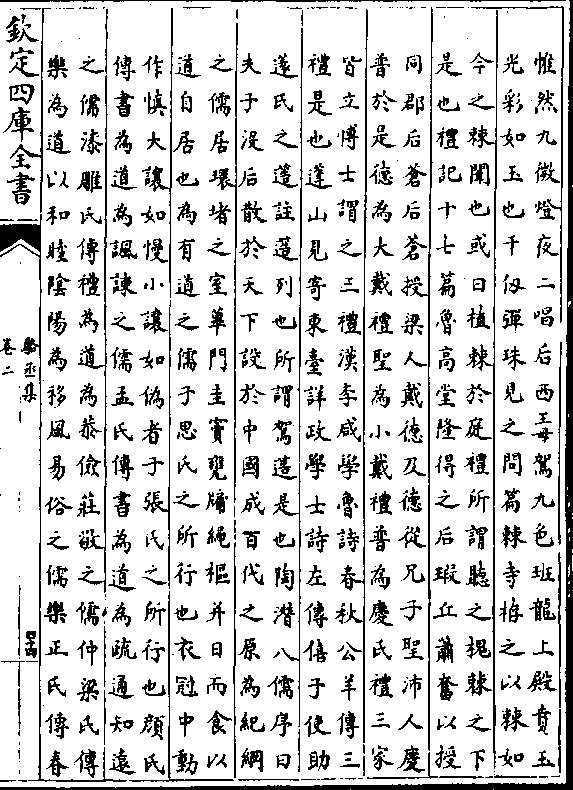 惟然九微燈夜二唱后西王母駕九色班龍上殿賁玉
光彩如玉也千仭彈珠見之問篇棘寺梅之以棘如
今之棘闈也或曰植棘於庭禮所謂聽之槐棘之下
是也禮記十七篇魯高堂隆得之后瑕丘蕭奮以授
同郡后蒼后蒼授梁人戴德及德從兄子聖沛人慶
普於是德為大戴禮聖為小戴禮普為慶氏禮三家
皆立博士謂之三禮漢李咸學魯詩春秋公羊傳三
禮是也蓬山見寄東臺詳政學士詩左傳僖子使助
蓫氏之簉註簉列也所謂駕簉是也陶潛八儒序曰
夫子沒后散於天下設於中國成百代之原為紀綱
之儒居環堵之室蓽門圭竇甕牖繩樞并日而食以
道自居也為有道之儒子思氏之所行也衣冠中動
作慎大讓如慢小讓如偽者子張氏之所行也顏氏
傳書為道為諷諫之儒孟氏傳書為道為疏通知遠
之儒漆雕氏傳禮為道為恭儉莊敬之儒仲梁氏傳
樂為道以和陰陽為移風易俗之儒樂正氏傳春
欽定四庫全書
駱丞集
卷二